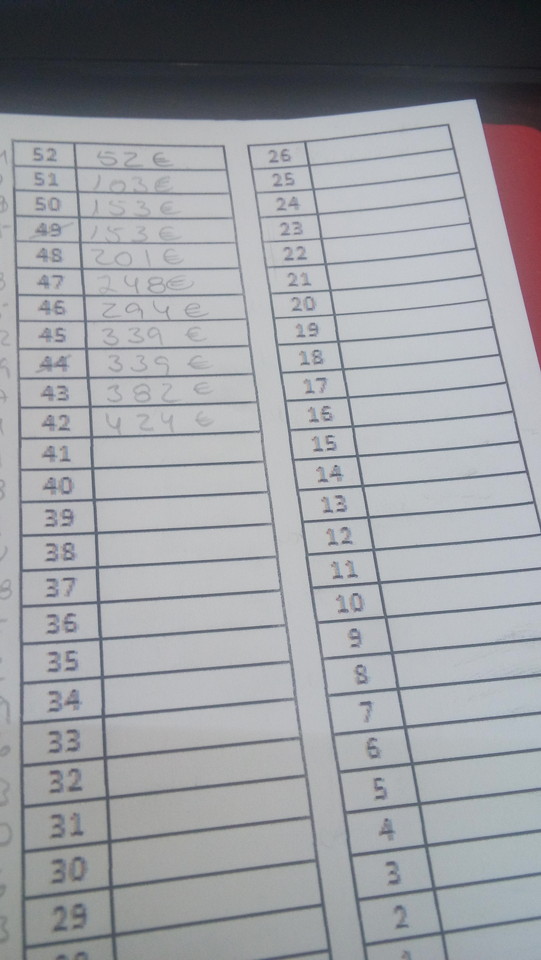 52 52€
51 103€
50 153€
49 153€
48 201€
47 248€
46 294€
45 339
44 339 €
43 382€
42 424€
41
40
39
38
37
36
35
34
33
32
31
30
29
26
25
24
23
22
21
20
19
18
17
16
15
14
13
12
11
10
9
8
7
6
5
4
3
2